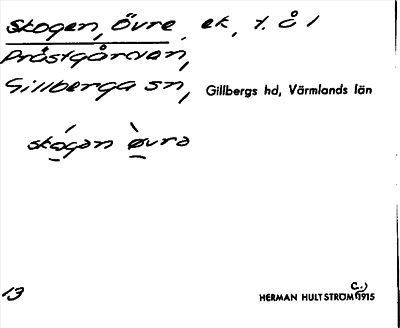 Skogen, Övre, ek, 1. å 1
Prästgården,
Gillberga sn, Gillbergs hd, Värmlands län
skogan øvra
13
HERMAN HULTSTRÖM (C.) 1915